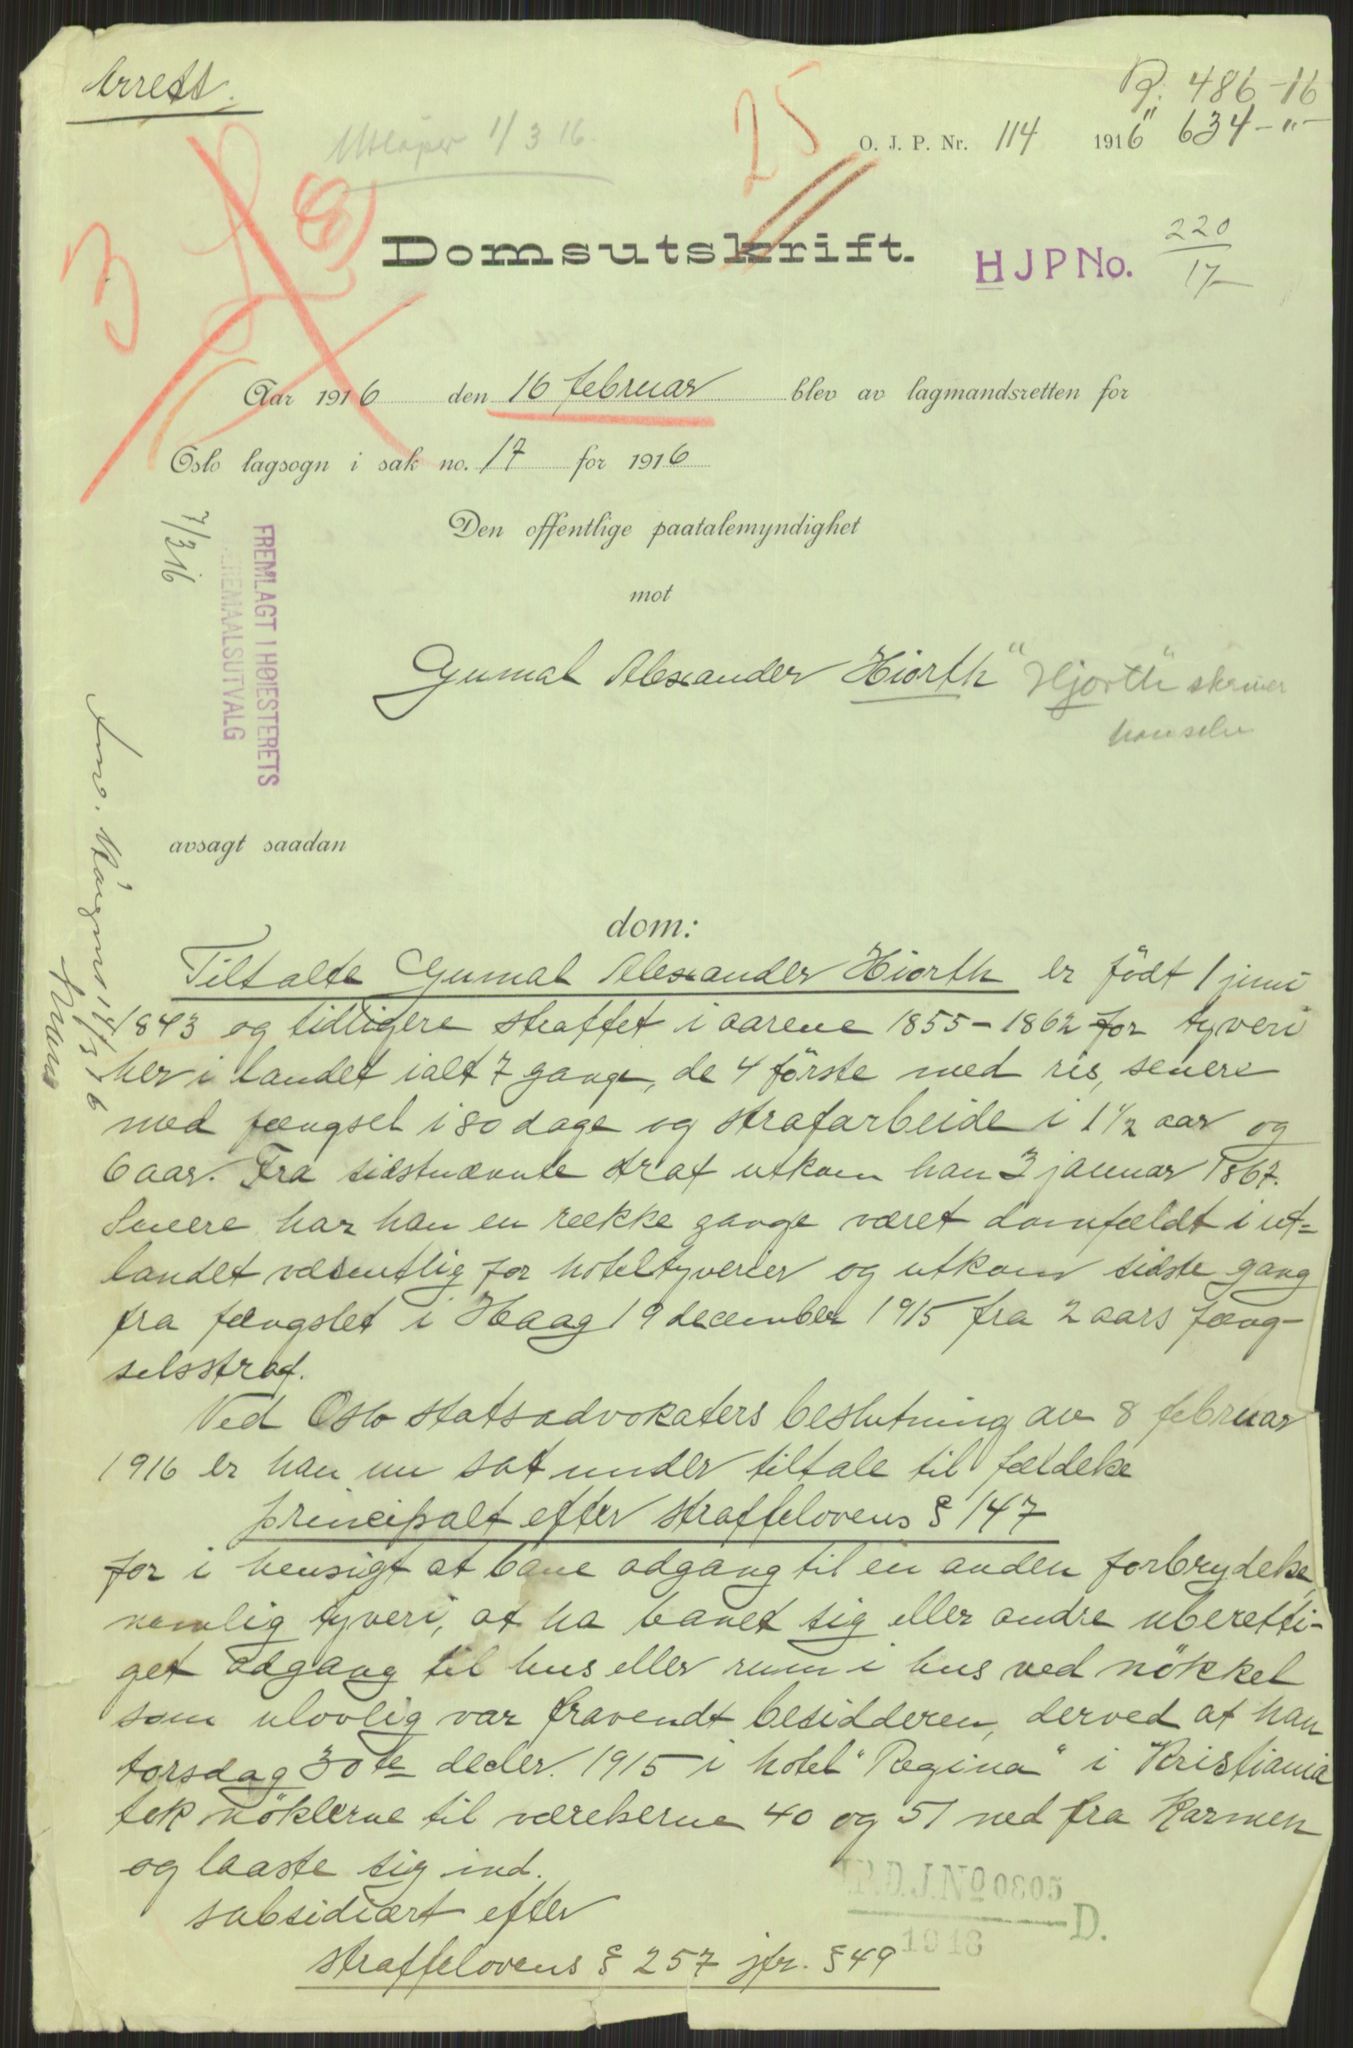 Arrest.
Utløper 1/3 16.
25
R. 486-16
" 634-"-
O. J. P. Nr. 114 1916
3
Domsutskrift.
H J P No. 220/17
Aar 1916 den 16 februar blev av lagmandsretten for
Oslo lagsogn i sak no. 17 for 1916
Den offentlige paatalemyndighet
mot
7/3 16
FREMLAGT I HØIESTERETS
KJÆREMAALSUTVALG
Gumal Alexander Hiorth "Hjorth" skriver
han selv
avsagt saadan
dom:
Tiltalte Gumal Alexander Hiorth er født 1 juni
1843 og tidligere straffet i aarene 1855-1862 for tyveri
her i landet ialt 7 gange, de 4 første med ris, senere
med fængsel i 80 dage og strafarbeide i 1 1/2 aar og
6 aar. Fra sidstnævnte straf utkom han 3 januar 1867.
Senere har han en række gange været domfældt i ut=
landet væsentlig for hoteltyverier og utkom sidste gang
fra fængslet i Haag 19 december 1915 fra 2 aars fæng-
selsstraf.
Ved Oslo statsadvokaters beslutning av 8 februar
1916 er han nu sat under tiltale til fældelse
principalt efter straffelovens § 147
for i hensigt at bane adgang til en anden forbrydelse,
nemlig tyveri, at ha banet sig eller andre uberetti-
get adgang til hus eller rum i hus ved nøkkel
som ulovlig var fravendt besidderen, derved at han
torsdag 30te decbr. 1915 i hotel "Regina" i Kristiania
tok nøklerne til værelserne 40 og 51 ned fra karmen
og laaste sig ind.
subsidiært efter
straffelovens § 257 jfr. § 49
R.D.J.No 0805
1916 D.